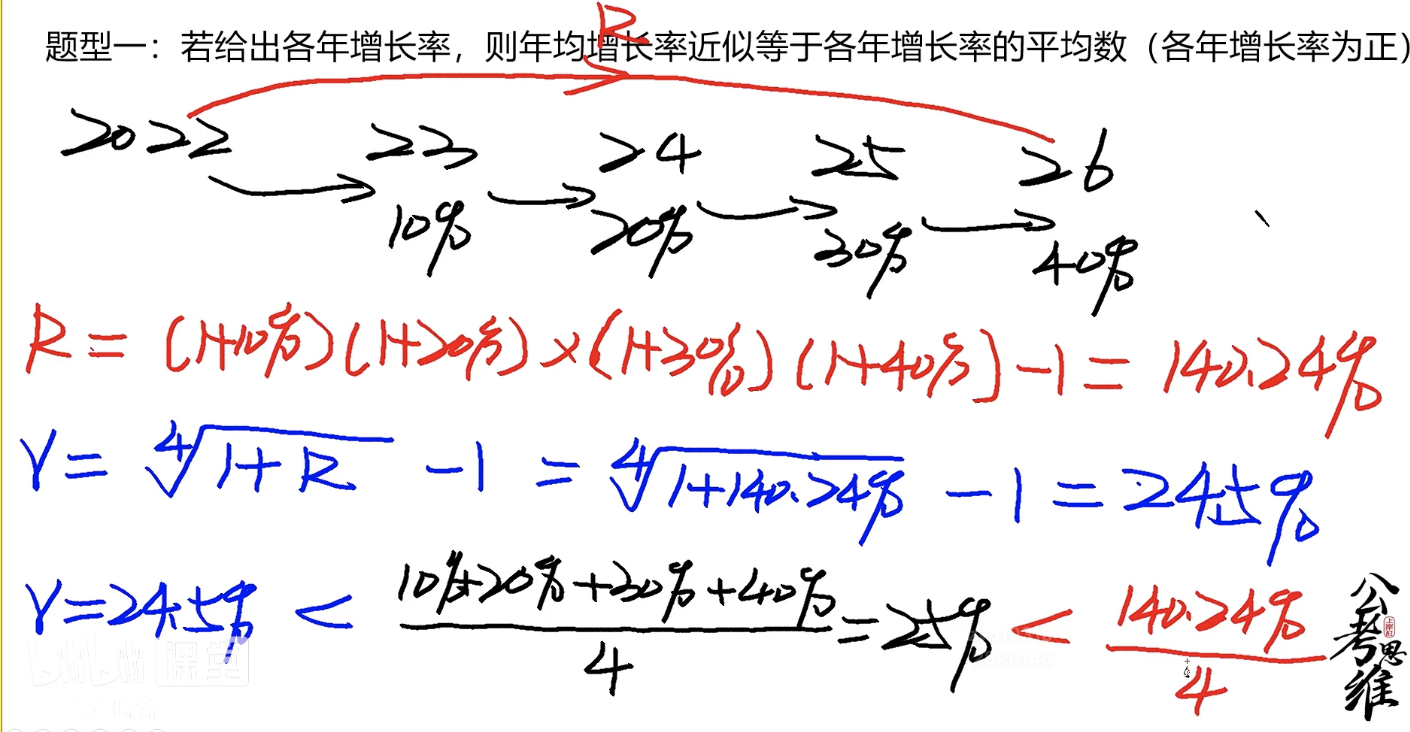 题型一：若给出各年增长率，则年均增长率近似等于各年增长率的平均数（各年增长率为正）
R
2022 23 24 25 26
10% 20% 30% 40%
R = (1+10%)(1+20%)×(1+30%)(1+40%)-1 = 140.24%
r = ∜(1+R) - 1 = ∜(1+140.24%) - 1 = 24.5%
r = 24.5% < (10%+20%+30%+40%)/4 = 25% < 140.24%/4
课堂
公考思维